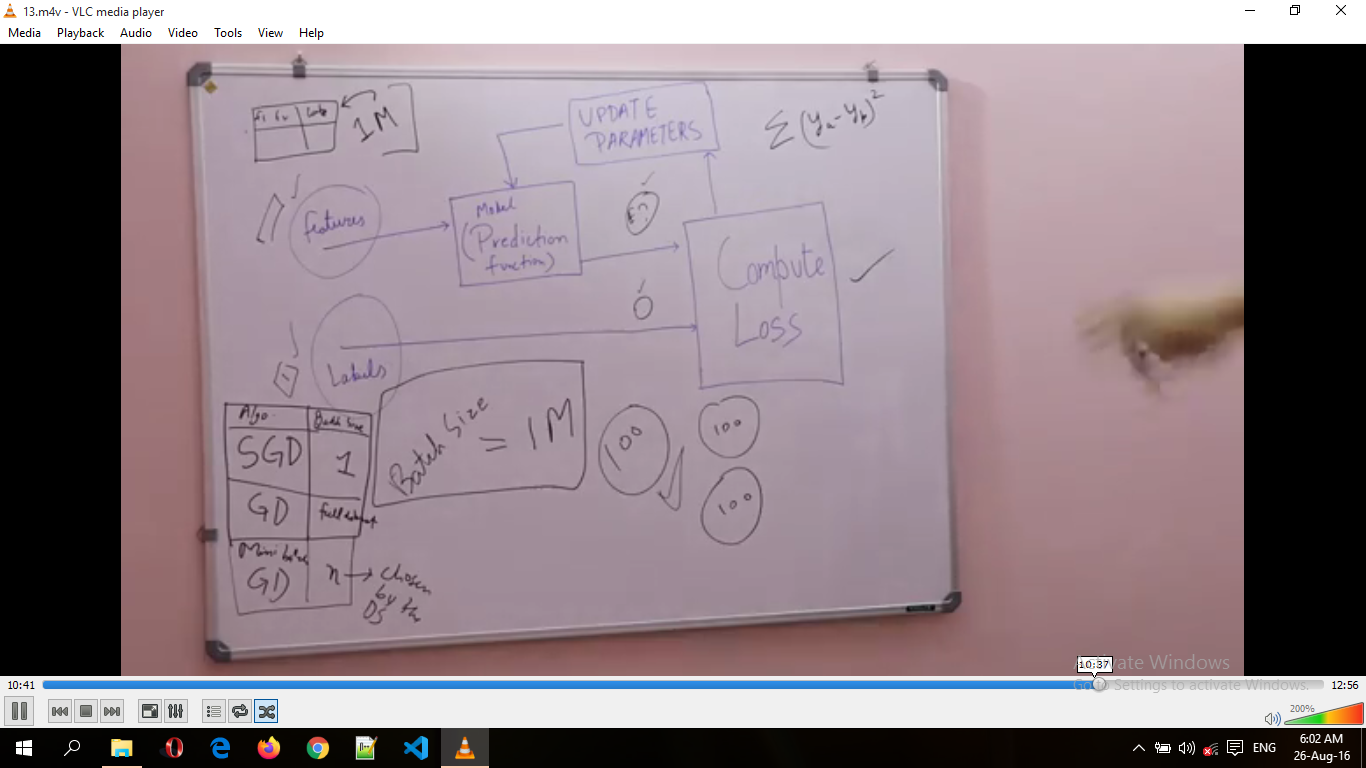 13.m4v - VLC media player
Media Playback Audio Video Tools View Help
1M
UPDATE
PARAMETERS
Σ(
)²
Features
Model
(Prediction
function)
Compute
Loss
Labels
Algo
Batch Size
SGD
1
GD
Mini
GD
n → chosen
by
DS
Batch Size
= 1M
100
100
100
10:37
Activate Windows
Go to Settings to activate Windows.
10:41
12:56
200%
ENG
6:02 AM
26-Aug-16